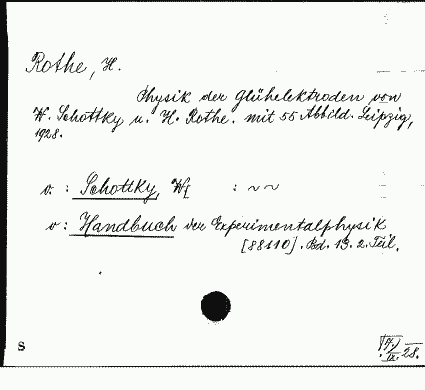 Rothe, H.
Physik der Glühelektroden von
W. Schottky u. H. Rothe. mit 55 Abbild. Leipzig,
1928.
v. : Schottky, W[ : ~~
v : Handbuch der Experimentalphysik
[88110]. Bd. 13. 2. Teil.
S
28.